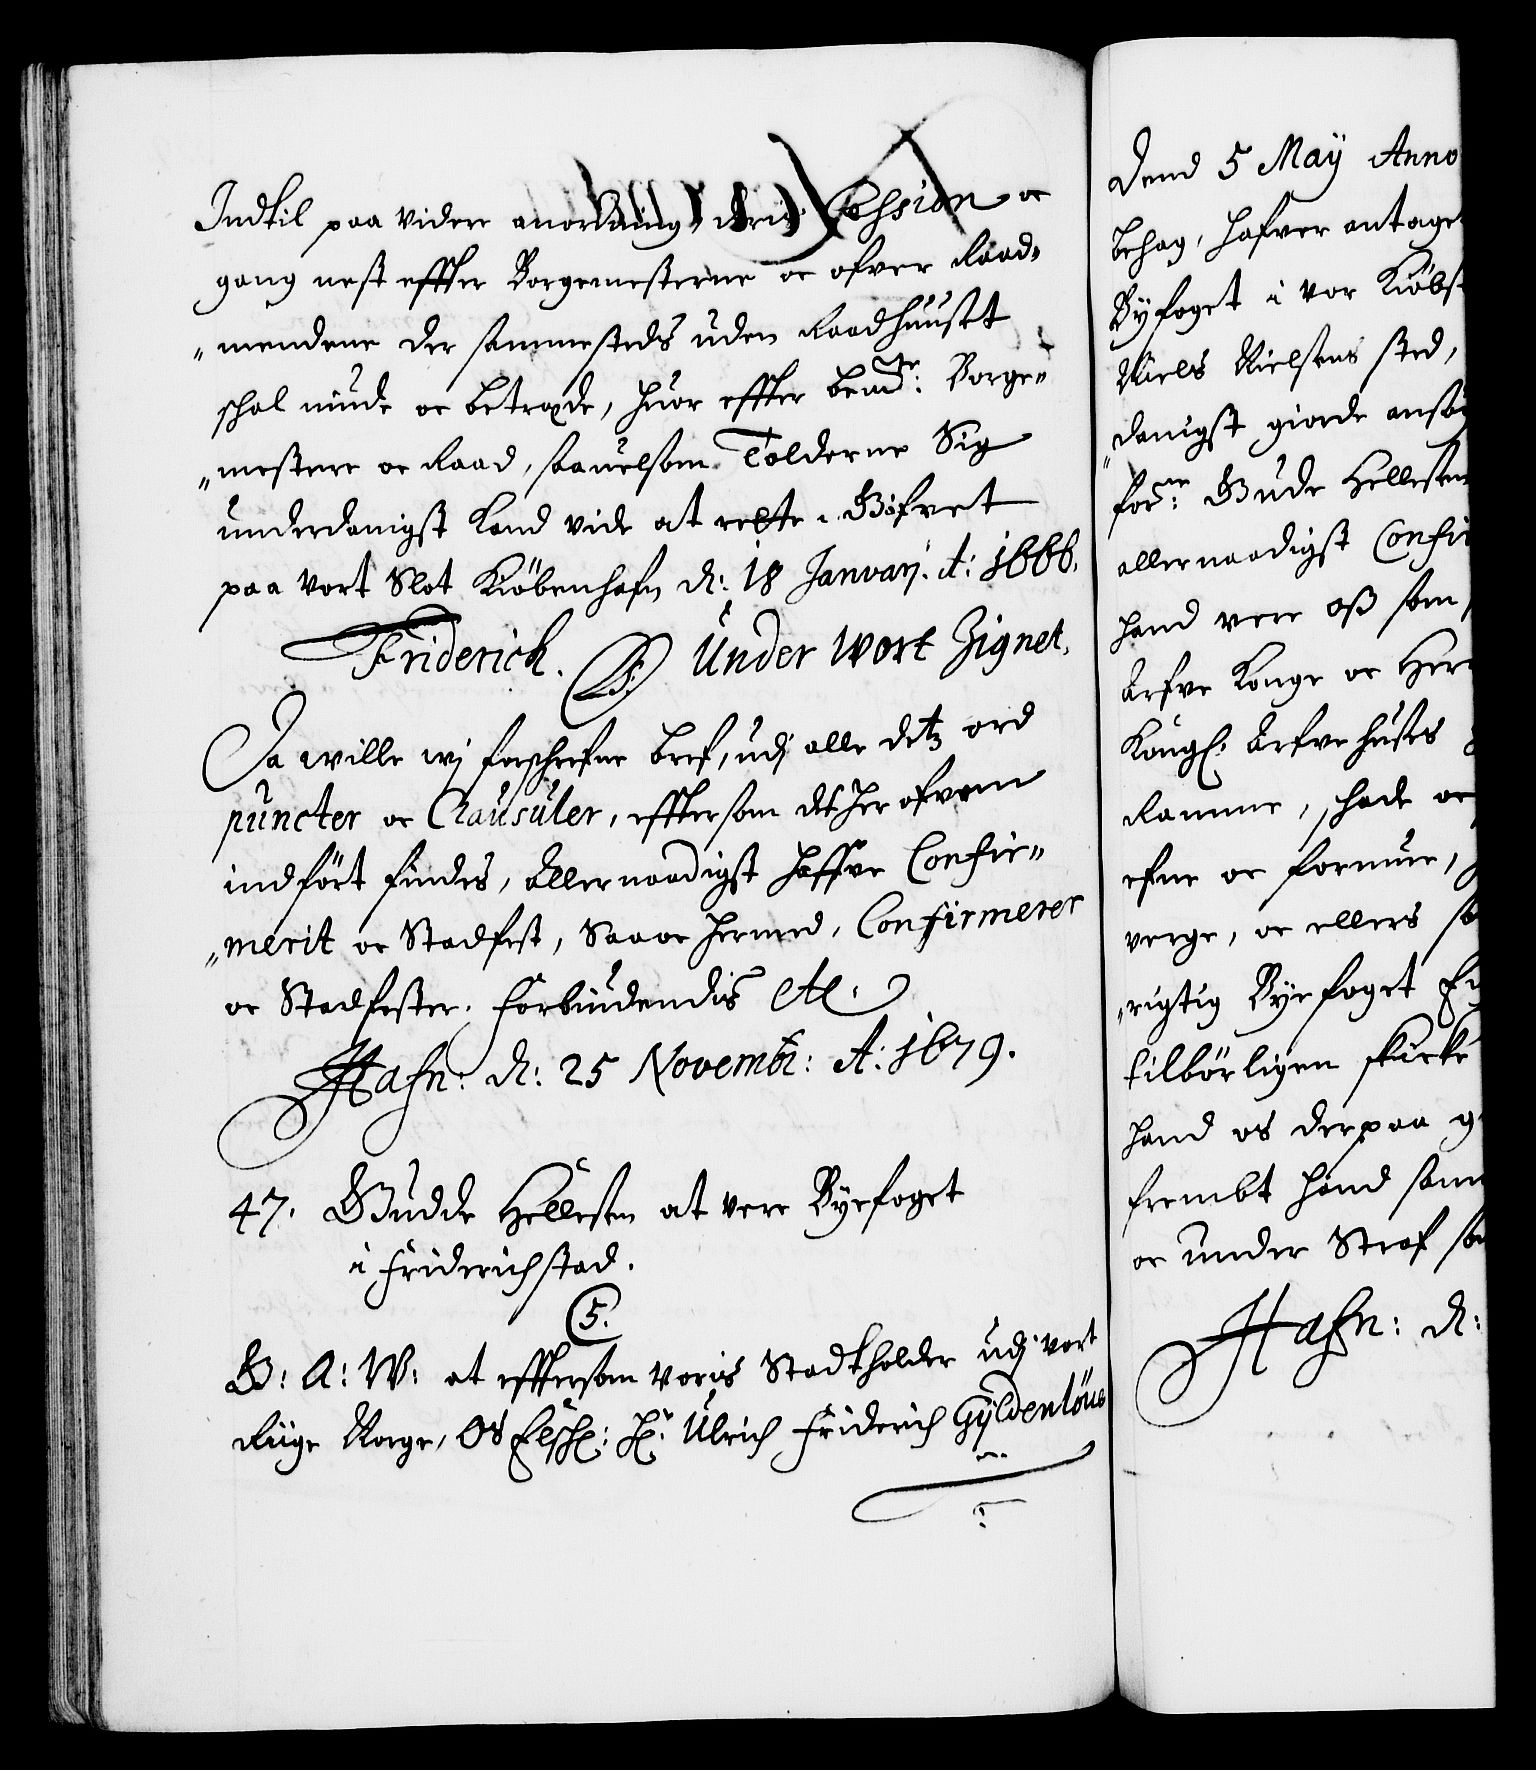 Indtil paa videre anordning deris Session oc
gang nest effter Borgemesterne oc ofver Raad-
„mendene der sammesteds uden Raadhuuset
schal niude oc betræde, huor effter bemte: Borge-
„mestere oc Raad, saavelsom Tolderne Sig
underdanigst kand vide at rette. Gifvet
paa vort Slot Kiöbenhafn d: 18 Januarj. A: 1666.
Friderich. (L.S.) Under Wort Zignet.
Da wille wj forschrefne bref, udj alle detz ord
puncter oc Clausuler, efftersom det her ofven
indfört findes, allernaadigst haffve Confir-
„merit oc Stadfest, Saa oc hermed, Confirmerer
oc Stadfester. Forbiudendis etc.
Hafn: d: 25 Novembr: A: 1679.
47. Gudde Hellesen at vere Byefoget
i Friderichstad.
C5.
G: A: W: at efftersom voris Stadtholder udj vort
Riige Norge, Os Elschl: Hr. Ulrich Friderich Gyldenlöue
Dend 5 Maÿ Anno
behag, hafver antage
Byfoget i vor Kiöbs
Niels Nielsens sted,
„danigst giorde ansög
forne: Gude Hellesen
allernaadigst Confir
hand vere oß som
Arfve Konge oc Herr
Kongl: Arfve Huses
Ramme, schade oc
efne oc formue,
verge, oc ellers so
„rigtig Byefoget Ey
tilbörligen skicke
hand os derpaa g
frembt hand sam
oc under Straf so
Hafn: d: